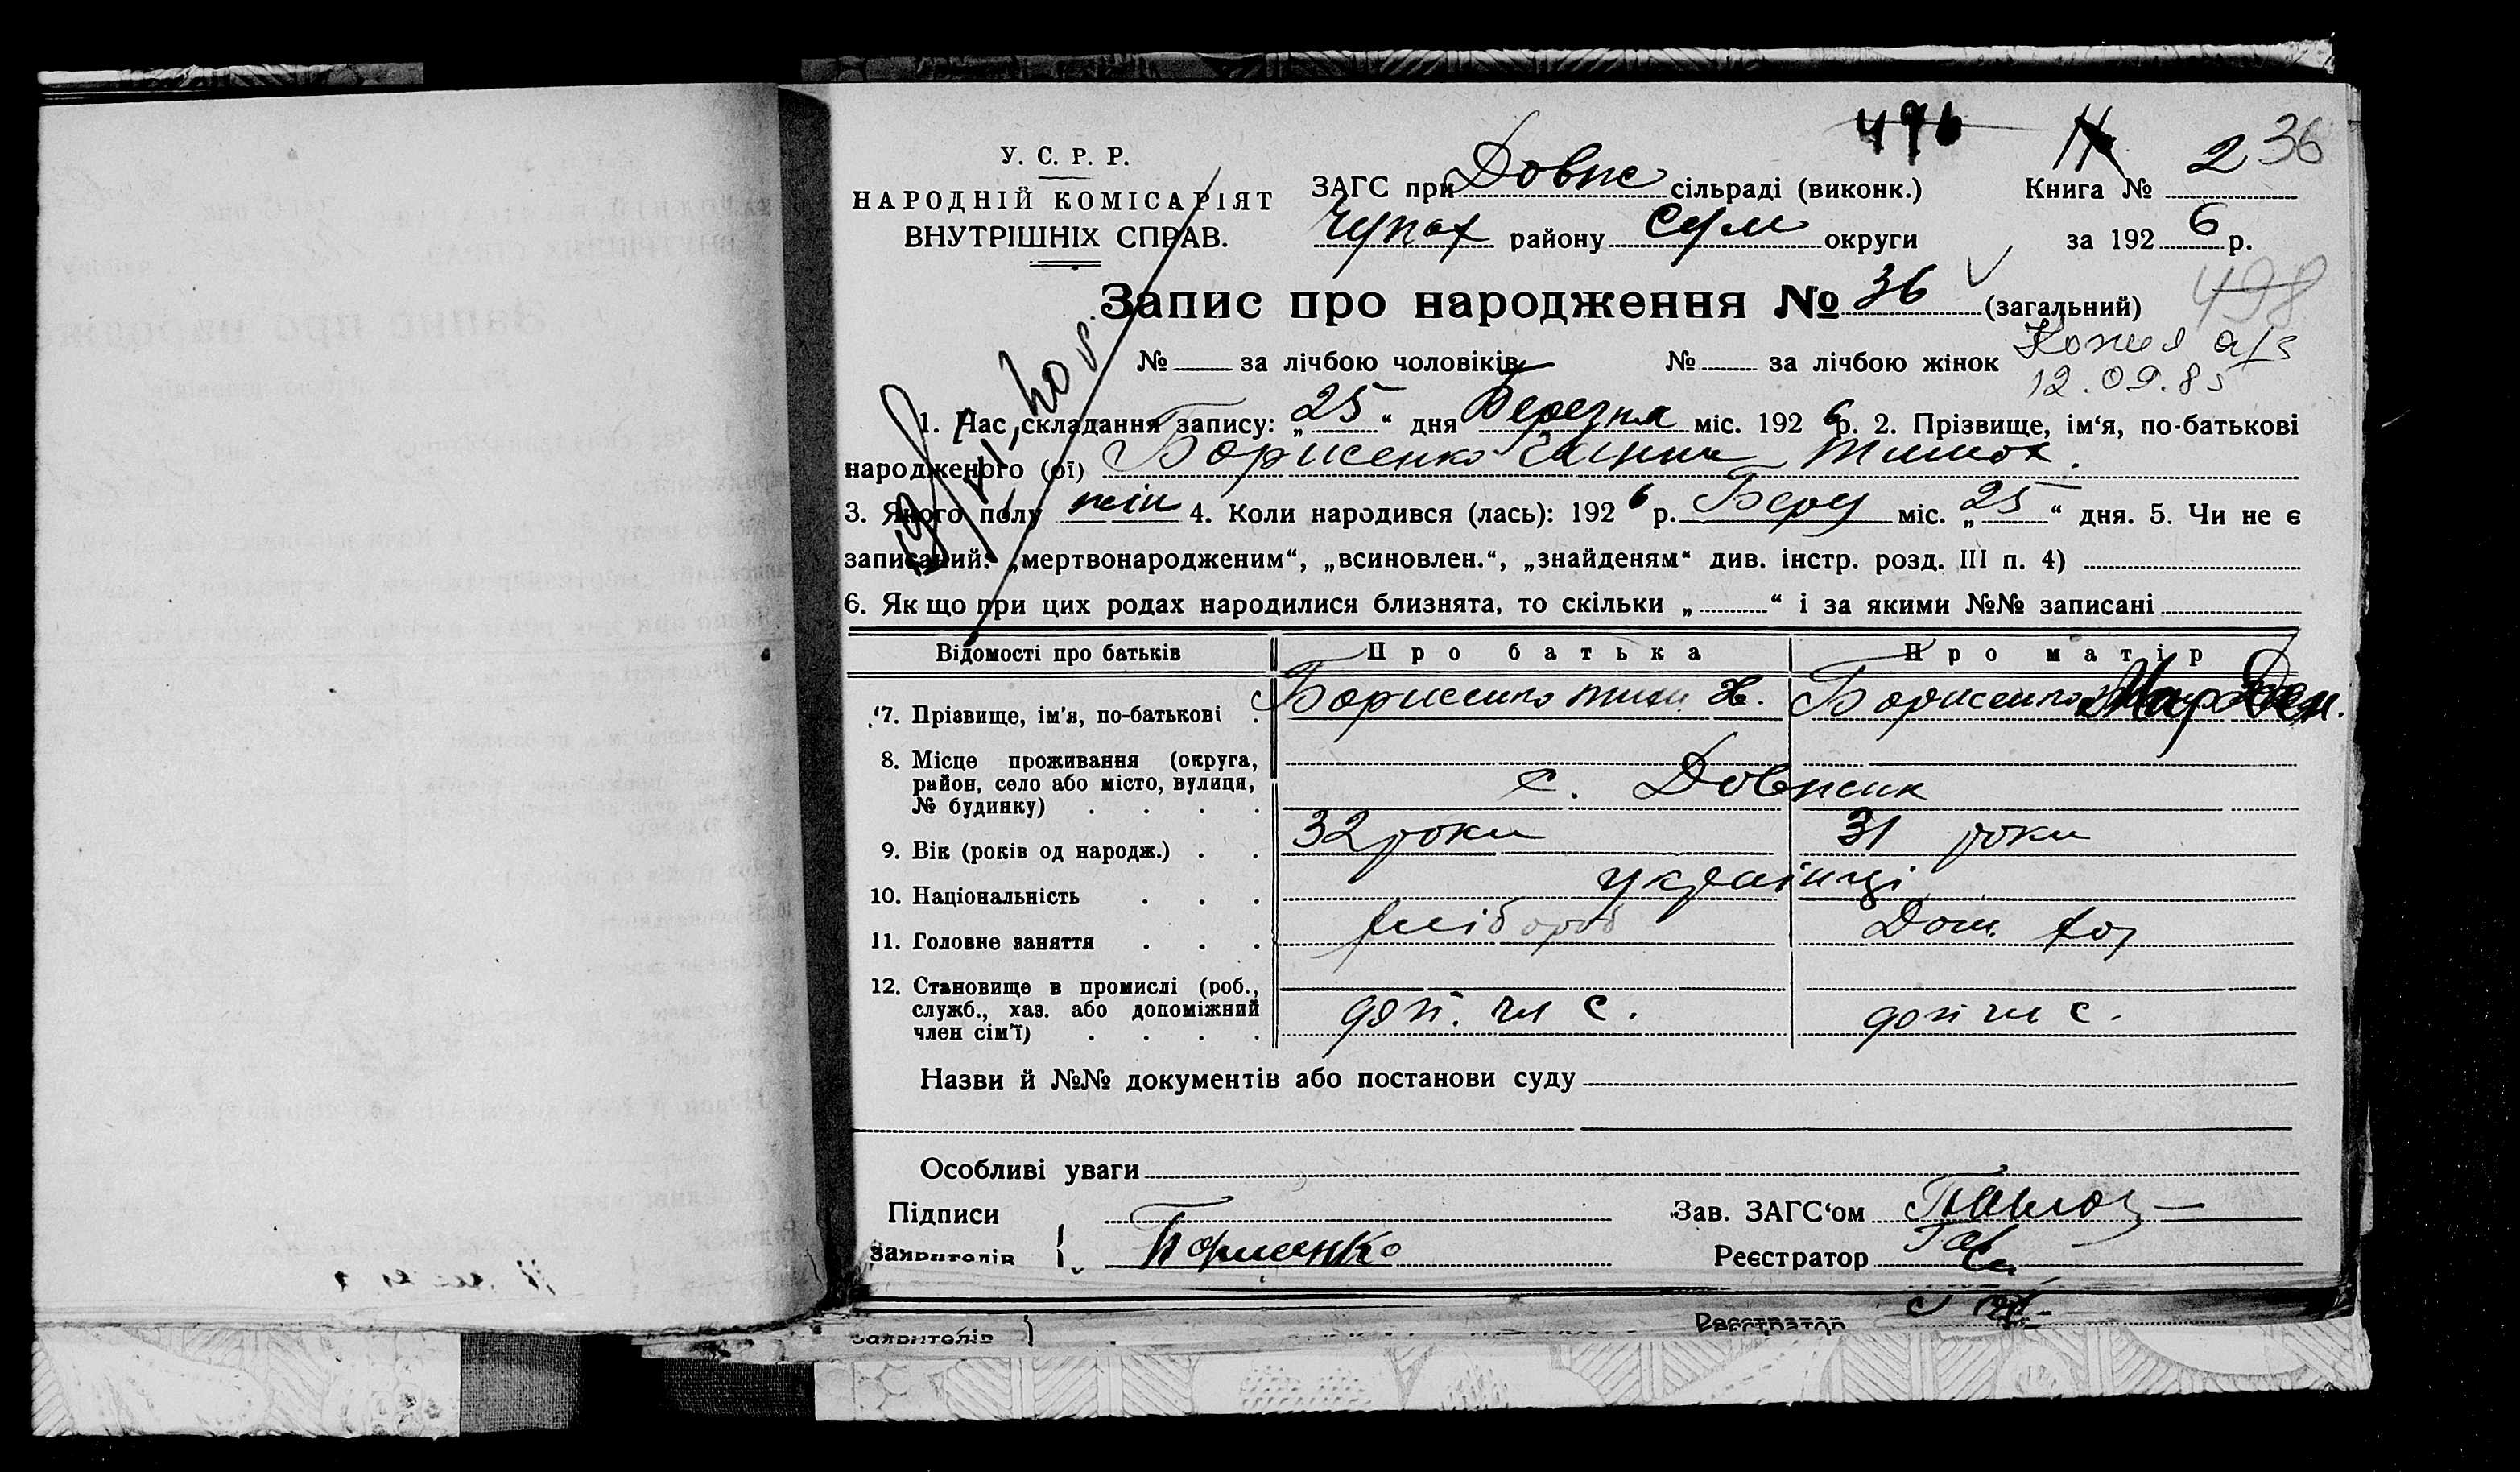 496
36
У. С. Р. Р.
НАРОДНІЙ КОМІСАРІЯТ
ВНУТРІШНІХ СПРАВ.
ЗАГС при Довж сільраді (виконк.)
Чупах району Сум округи
Книга № 2
за 1926 р.
Запис про народження № 36 (загальний)
498
№ за лічбою чоловіків
№ за лічбою жінок
Копия а/з
12.09.85
1. Час складання запису: „25“ дня Березня міс. 1926р. 2. Прізвище, ім‘я, по-батькові
народженого (ої) Борисенко Ганна Тимох.
3. Якого полу жін 4. Коли народився (лась): 1926 р. Берез міс. „25“ дня. 5. Чи не є
записаний: „мертвонародженим“, „всиновлен.“, „знайденям“ див. інстр. розд. III п. 4)
6. Як що при цих родах народилися близнята, то скільки „ “ і за якими №№ записані
Відомості про батьків Про батька Про матір
7. Прізвище, ім'я, по-батькові . Борисенко Тим. Борисенко Мар Дем.
8. Місце проживання (округа,
район, село або місто, вулиця,
№ будинку) . . . . с. Довжик
9. Вік (років од народж.) . . 32 роки 31 роки
10. Національність . . . українці
11. Головне заняття . . . хлібороб Дом. хоз
12. Становище в промислі (роб.,
служб., хаз. або допоміжний
член сім'ї) . . . . доп. чл с. доп чл с.
Назви й №№ документів або постанови суду
Особливі уваги
Підписи
заявителів { Борисенко
Зав. ЗАГС‘ом
Реєстратор
заявителів }
Реєстратор